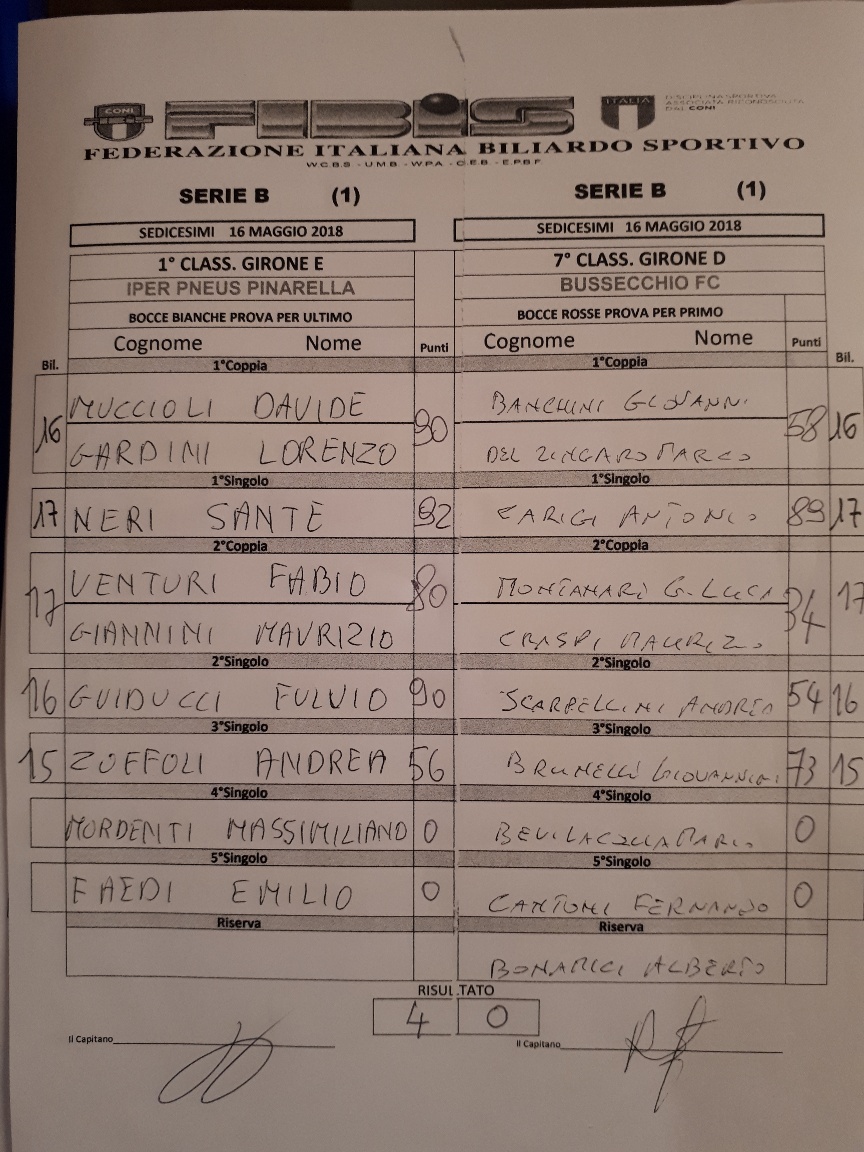 CONI FIBiS ITALIA DISCIPLINA SPORTIVA
ASSOCIATA RICONOSCIUTA
DAL CONI
FEDERAZIONE ITALIANA BILIARDO SPORTIVO
W.C.B.S. - U.M.B. - W.P.A. - C.E.B. - E.P.B.F.
SERIE B (1) SERIE B (1)
SEDICESIMI 16 MAGGIO 2018 SEDICESIMI 16 MAGGIO 2018
1° CLASS. GIRONE E 7° CLASS. GIRONE D
IPER PNEUS PINARELLA BUSSECCHIO FC
BOCCE BIANCHE PROVA PER ULTIMO BOCCE ROSSE PROVA PER PRIMO
Cognome Nome Punti Cognome Nome Punti
Bil. 1°Coppia 1°Coppia Bil.
MUCCIOLI DAVIDE BANCHINI GIOVANNI
16 90 58 16
GARDINI LORENZO DEL ZINGARO MARCO
1°Singolo 1°Singolo
17 NERI SANTE 92 CARIGI ANTONIO 89 17
2°Coppia 2°Coppia
VENTURI FABIO MONTANARI G. LUCA
17 80 34 17
GIANNINI MAURIZIO CRASPI MAURIZIO
2°Singolo 2°Singolo
16 GUIDUCCI FULVIO 90 SCARPELLINI ANDREA 54 16
3°Singolo 3°Singolo
15 ZOFFOLI ANDREA 56 BRUNELLI GIOVANNINI 73 15
4°Singolo 4°Singolo
MORDENTI MASSIMILIANO 0 BEVILACQUA MARIO 0
5°Singolo 5°Singolo
FAEDI EMILIO 0 CANTONI FERNANDO 0
Riserva Riserva
BONARICI ALBERTO
RISULTATO
4 0
Il Capitano Il Capitano